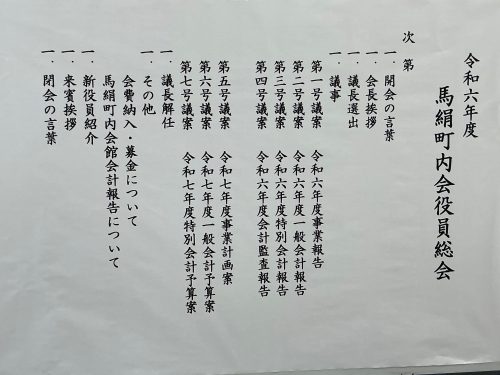 令和六年度
馬絹町内会役員総会
次第
一．開会の言葉
一．会長挨拶
一．議長選出
一．議事
第一号議案 令和六年度事業報告
第二号議案 令和六年度一般会計報告
第三号議案 令和六年度特別会計報告
第四号議案 令和六年度会計監査報告
第五号議案 令和七年度事業計画案
第六号議案 令和七年度一般会計予算案
第七号議案 令和七年度特別会計予算案
一．議長解任
一．その他
会費納入・募金について
馬絹町内会館会計報告について
一．新役員紹介
一．来賓挨拶
一．閉会の言葉